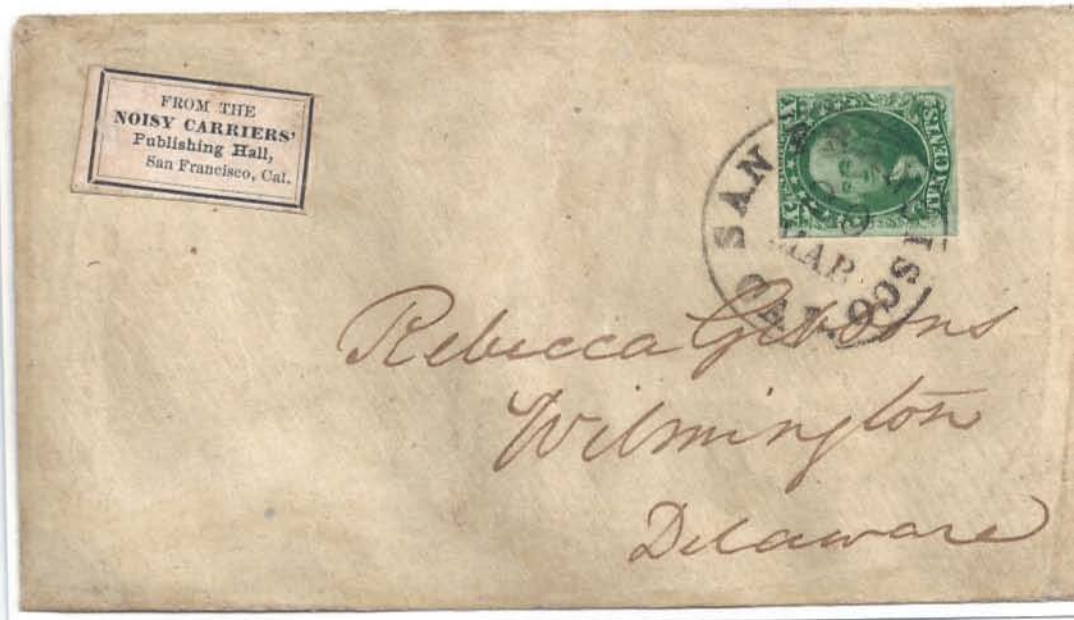 FROM THE
NOISY CARRIERS'
Publishing Hall,
San Francisco, Cal.
SAN
CISCO
CAL.
MAR
Rebecca Gibbons
Wilmington
Delaware